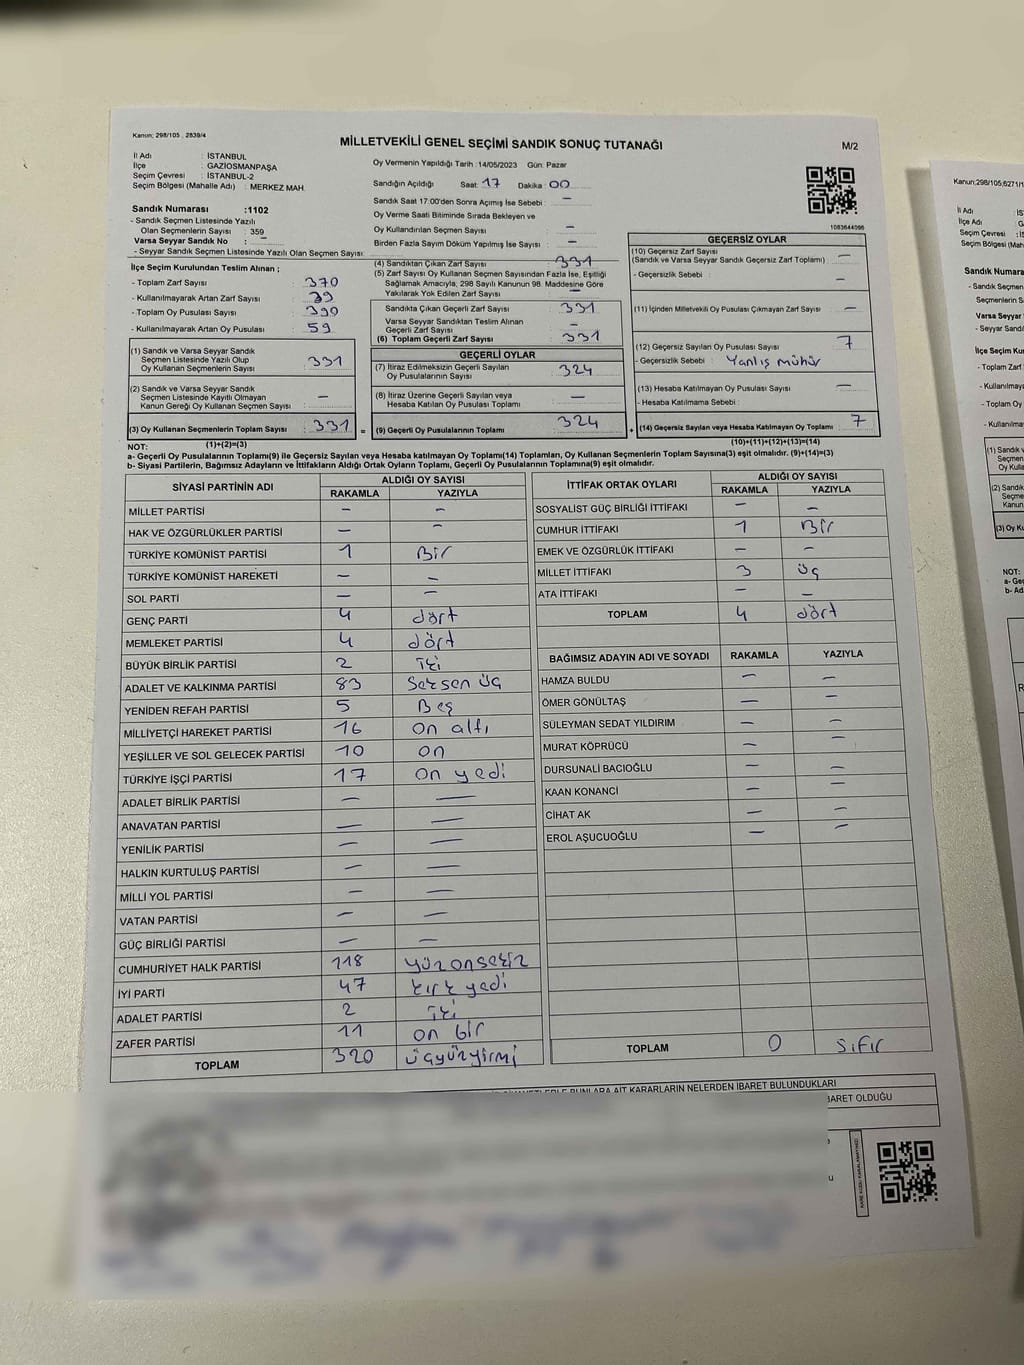 Kanun; 298/105 , 2839/4
MİLLETVEKİLİ GENEL SEÇİMİ SANDIK SONUÇ TUTANAĞI
M/2
İl Adı : İSTANBUL
İlçe : GAZİOSMANPAŞA
Seçim Çevresi : İSTANBUL-2
Seçim Bölgesi (Mahalle Adı) : MERKEZ MAH.
Sandık Numarası :1102
- Sandık Seçmen Listesinde Yazılı
Olan Seçmenlerin Sayısı : 359
Varsa Seyyar Sandık No : -
- Seyyar Sandık Seçmen Listesinde Yazılı Olan Seçmen Sayısı:
Oy Vermenin Yapıldığı Tarih :14/05/2023 Gün: Pazar
Sandığın Açıldığı Saat: 17 Dakika: 00
Sandık Saat 17:00'den Sonra Açımış İse Sebebi : —
Oy Verme Saati Bitiminde Sırada Bekleyen ve
Oy Kullandırılan Seçmen Sayısı : —
Birden Fazla Sayım Döküm Yapılmış İse Sayısı : —
1083644098
İlçe Seçim Kurulundan Teslim Alınan ;
- Toplam Zarf Sayısı : 370
- Kullanılmayarak Artan Zarf Sayısı : 39
- Toplam Oy Pusulası Sayısı : 390
- Kullanılmayarak Artan Oy Pusulası : 59
(1) Sandık ve Varsa Seyyar Sandık
Seçmen Listesinde Yazılı Olup
Oy Kullanan Seçmenlerin Sayısı : 331
(2) Sandık ve Varsa Seyyar Sandık
Seçmen Listesinde Kayıtlı Olmayan
Kanun Gereği Oy Kullanan Seçmen Sayısı : —
(3) Oy Kullanan Seçmenlerin Toplam Sayısı : 331 =
(4) Sandıktan Çıkan Zarf Sayısı : 331
(5) Zarf Sayısı Oy Kullanan Seçmen Sayısından Fazla İse, Eşitliği
Sağlamak Amacıyla, 298 Sayılı Kanunun 98. Maddesine Göre
Yakılarak Yok Edilen Zarf Sayısı : —
Sandıkta Çıkan Geçerli Zarf Sayısı : 331
Varsa Seyyar Sandıktan Teslim Alınan
Geçerli Zarf Sayısı : —
(6) Toplam Geçerli Zarf Sayısı : 331
GEÇERLİ OYLAR
(7) İtiraz Edilmeksizin Geçerli Sayılan
Oy Pusulalarının Sayısı : 324
(8) İtiraz Üzerine Geçerli Sayılan veya
Hesaba Katılan Oy Pusulası Toplamı : —
(9) Geçerli Oy Pusulalarının Toplamı : 324 +
GEÇERSİZ OYLAR
(10) Geçersiz Zarf Sayısı
(Sandık ve Varsa Seyyar Sandık Geçersiz Zarf Toplamı) : —
- Geçersizlik Sebebi : —
(11) İçinden Milletvekili Oy Pusulası Çıkmayan Zarf Sayısı : —
(12) Geçersiz Sayılan Oy Pusulası Sayısı : 7
- Geçersizlik Sebebi : Yanlış mühür
(13) Hesaba Katılmayan Oy Pusulası Sayısı : —
- Hesaba Katılmama Sebebi :
(14) Geçersiz Sayılan veya Hesaba Katılmayan Oy Toplamı : 7
NOT: (1)+(2)=(3) (10)+(11)+(12)+(13)=(14)
a- Geçerli Oy Pusulaları Toplamı(9) ile Geçersiz Sayılan veya Hesaba katılmayan Oy Toplamı(14) Toplamları, Oy Kullanan Seçmenlerin Toplam Sayısına(3) eşit olmalıdır. (9)+(14)=(3)
b- Siyasi Partilerin, Bağımsız Adayların ve İttifakların Aldığı Ortak Oyların Toplamı, Geçerli Oy Pusulalarının Toplamına(9) eşit olmalıdır.
SİYASİ PARTİNİN ADI ALDIĞI OY SAYISI
RAKAMLA YAZIYLA
MİLLET PARTİSİ — —
HAK VE ÖZGÜRLÜKLER PARTİSİ — —
TÜRKİYE KOMÜNİST PARTİSİ 1 Bir
TÜRKİYE KOMÜNİST HAREKETİ — —
SOL PARTİ — —
GENÇ PARTİ 4 dört
MEMLEKET PARTİSİ 4 dört
BÜYÜK BİRLİK PARTİSİ 2 iki
ADALET VE KALKINMA PARTİSİ 83 Seksen üç
YENİDEN REFAH PARTİSİ 5 Beş
MİLLİYETÇİ HAREKET PARTİSİ 16 on altı
YEŞİLLER VE SOL GELECEK PARTİSİ 10 on
TÜRKİYE İŞÇİ PARTİSİ 17 on yedi
ADALET BİRLİK PARTİSİ — —
ANAVATAN PARTİSİ — —
YENİLİK PARTİSİ — —
HALKIN KURTULUŞ PARTİSİ — —
MİLLİ YOL PARTİSİ — —
VATAN PARTİSİ — —
GÜÇ BİRLİĞİ PARTİSİ — —
CUMHURİYET HALK PARTİSİ 118 yüz onsekiz
İYİ PARTİ 47 kırk yedi
ADALET PARTİSİ 2 iki
ZAFER PARTİSİ 11 on bir
TOPLAM 320 üçyüzyirmi
İTTİFAK ORTAK OYLARI ALDIĞI OY SAYISI
RAKAMLA YAZIYLA
SOSYALİST GÜÇ BİRLİĞİ İTTİFAKI — —
CUMHUR İTTİFAKI 1 Bir
EMEK VE ÖZGÜRLÜK İTTİFAKI — —
MİLLET İTTİFAKI 3 üç
ATA İTTİFAKI — —
TOPLAM 4 dört
BAĞIMSIZ ADAYIN ADI VE SOYADI RAKAMLA YAZIYLA
HAMZA BULDU — —
ÖMER GÖNÜLTAŞ — —
SÜLEYMAN SEDAT YILDIRIM — —
MURAT KÖPRÜCÜ — —
DURSUNALİ BACIOĞLU — —
KAAN KONANCİ — —
CİHAT AK — —
EROL AŞUCUOĞLU — —
TOPLAM 0 sıfır
BUNLARA AİT KARARLARIN NELERDEN İBARET BULUNDUKLARI
İBARET OLDUĞU
Kanun;298/105;6271/1
İl Adı
İlçe Adı
Seçim Çevresi
Seçim Bölgesi (Mah
Sandık Numara
- Sandık Seçmen
Seçmenlerin S
Varsa Seyyar
- Seyyar Sandı
İlçe Seçim Kur
- Toplam Zarf
- Kullanılmaya
- Toplam Oy
- Kullanılma
(1) Sandık v
Seçmen
Oy Kulla
(2) Sandık
Seçme
Kanun
(3) Oy Ku
NOT:
a- Geç
b- Ad